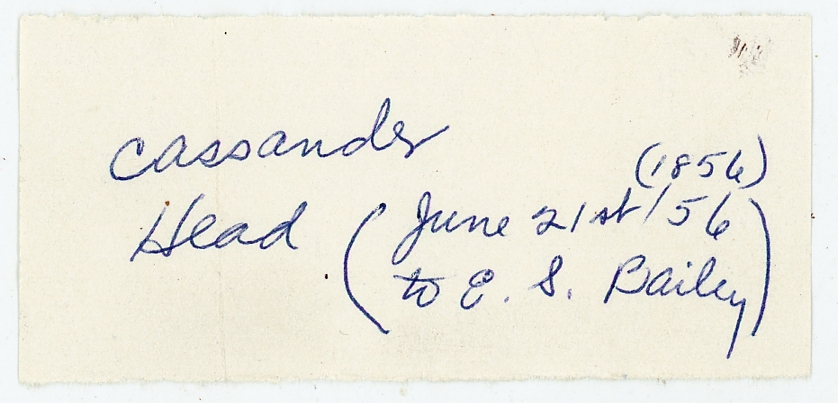 Cassander
(1856)
Head (June 21st/56
to E. S. Bailey)